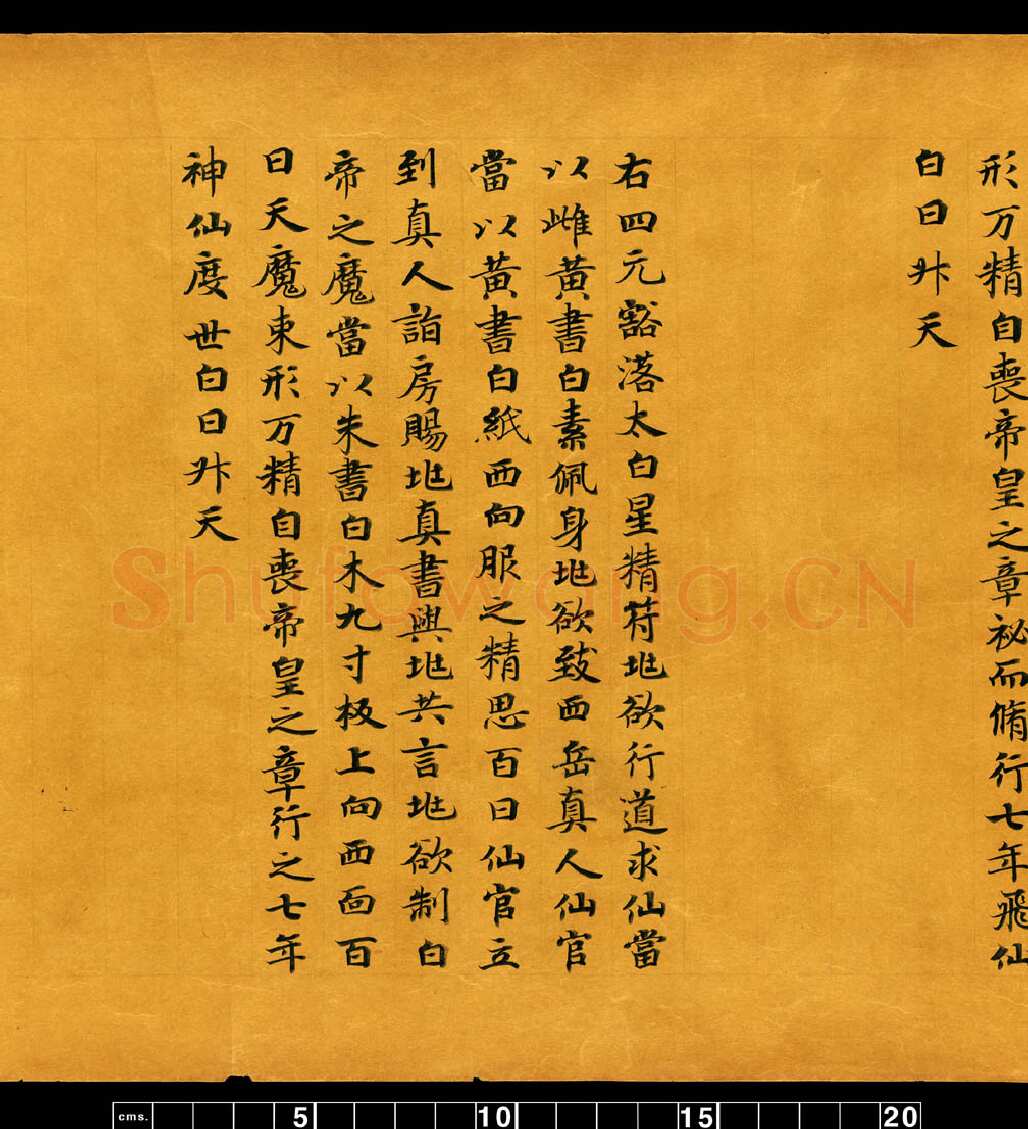 形万精自喪帝皇之章祕而脩行七年飛仙
白日升天
右四元豁落太白星精符兆欲行道求仙當
以雌黃書白素佩身兆欲致西岳真人仙官
當以黃書白紙西向服之精思百日仙官立
到真人詣房賜兆真書與兆共言兆欲制白
帝之魔當以朱書白木九寸板上向西面百
日天魔束形万精自喪帝皇之章行之七年
神仙度世白日升天
Shufawang.CN
cms. 5 10 15 20